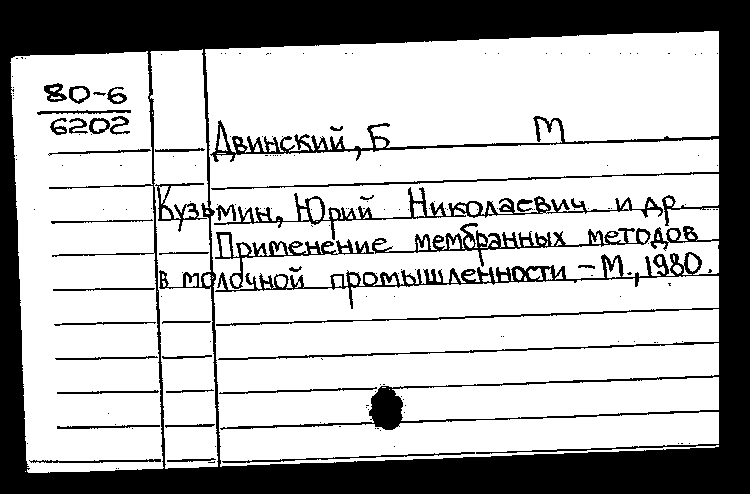 80-6
6202
Двинский, Б М
Кузьмин, Юрий Николаевич и др.
Применение мембранных методов
в молочной промышленности. - М., 1980.